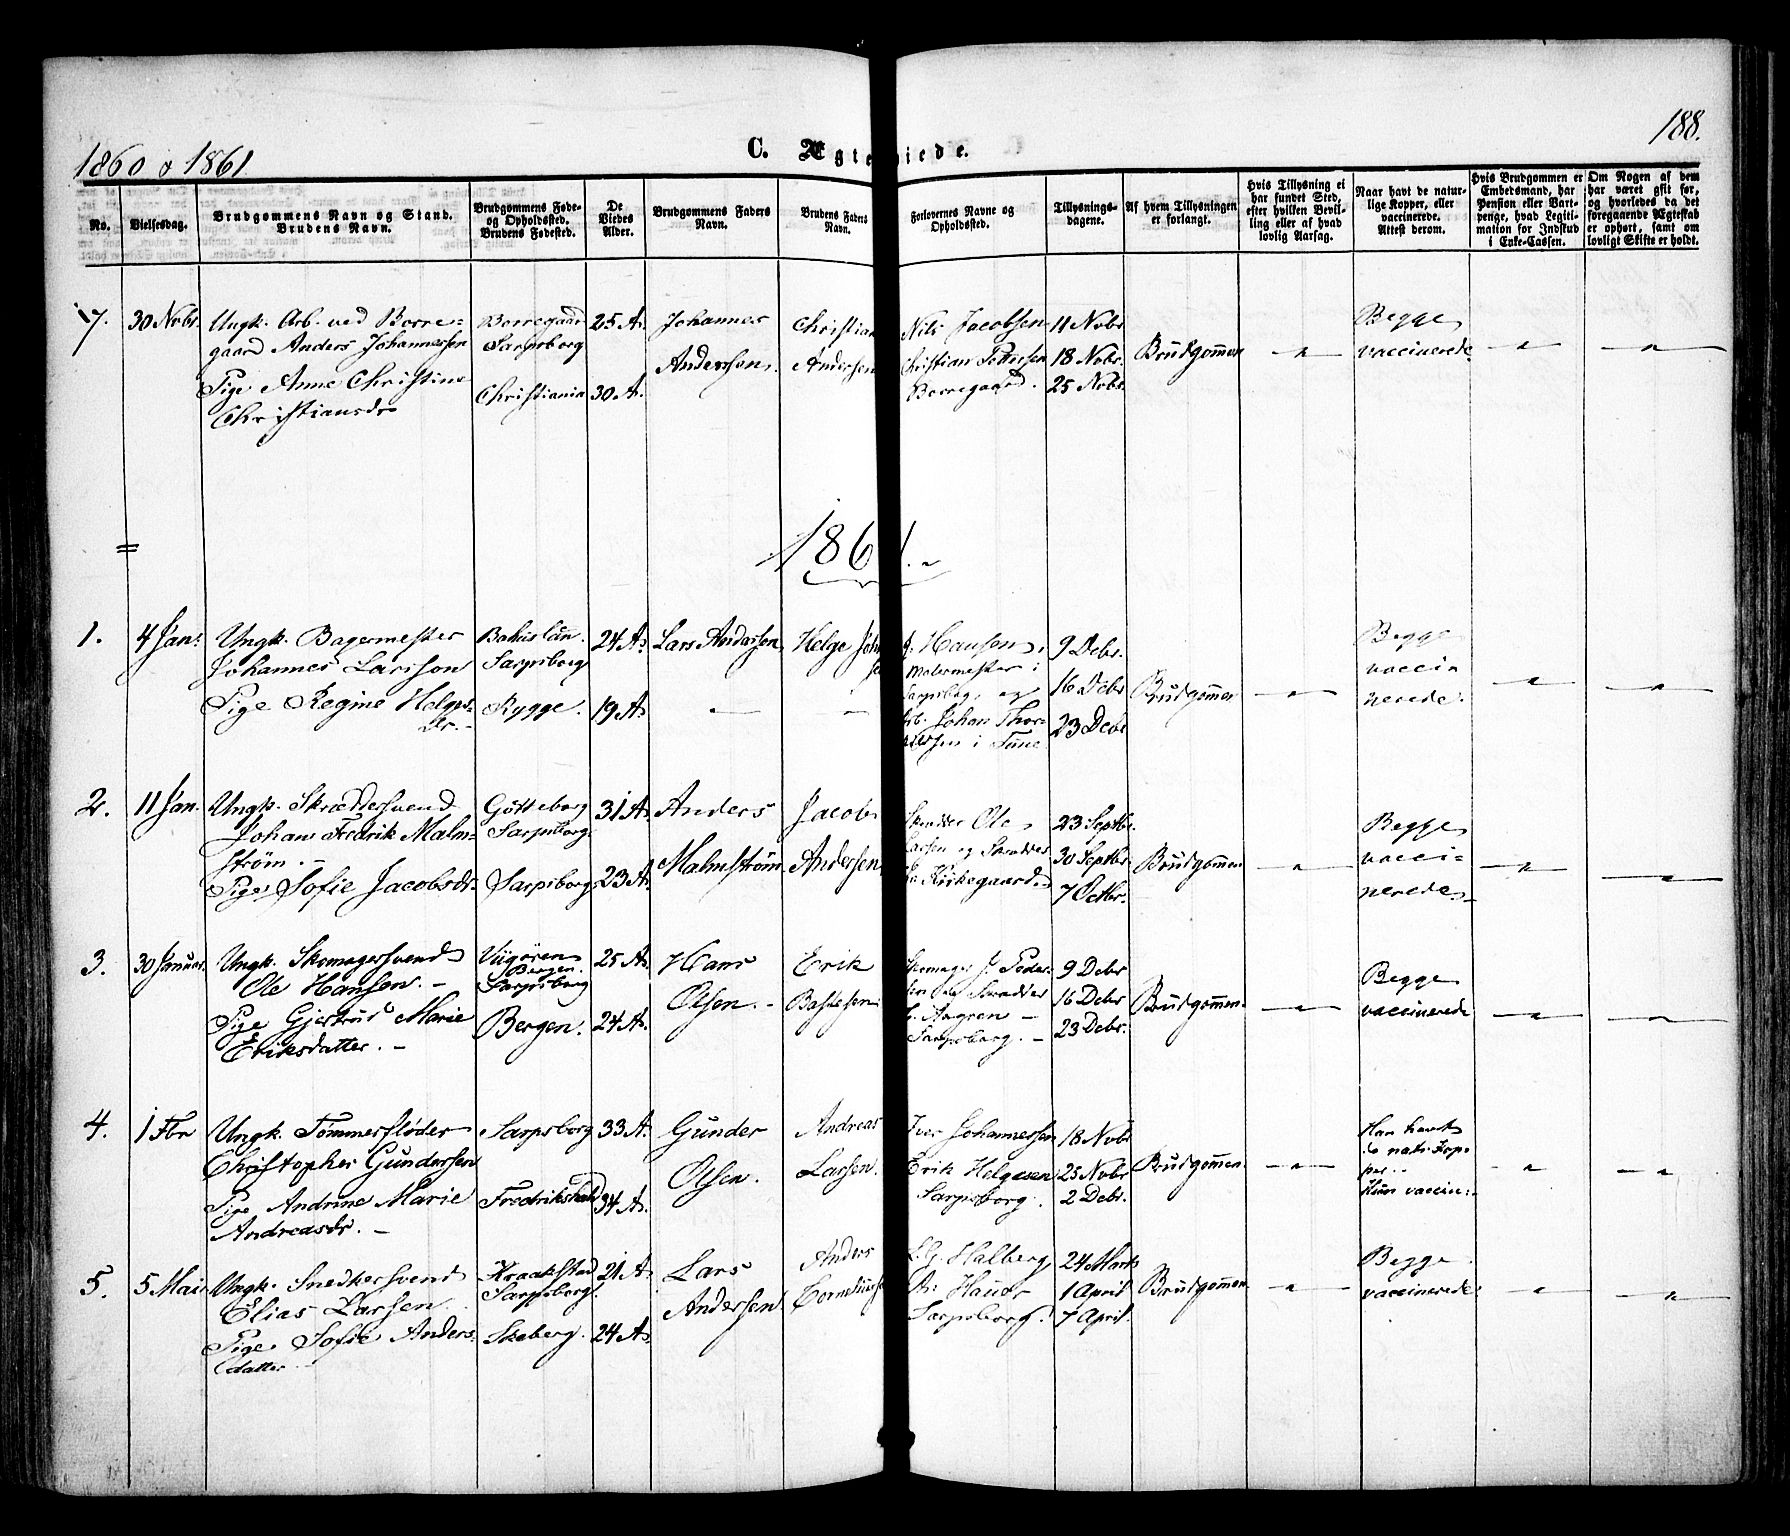 1860 & 1861
C. Ægteviede.
188.
No.
Vielsesdag.
Brudgommens Navn og Stand.
Brudens Navn.
Brudgommens Føde-
og Opholdssted.
Brudens Fødested.
De
Viedes
Alder.
Brudgommens Faders
Navn.
Brudens Faders
Navn.
Forlovernes Navne og
Opholdssted.
Tillysnings-
dagene.
Af hvem Tillysningen
er forlangt.
Hvis Tillysning ei
har fundet Sted,
efter hvilken Bevil-
ling eller af hvad
lovlig Aarsag.
Naar havt de natur-
lige Kopper, eller
vaccinerede.
Attest derom.
Hvis Brudgommen er
Embedsmand, har
Pension eller Vart-
penge, hvad Legiti-
mation for Indskud
i Enke-Cassen.
Om Nogen af dem
har været gift før,
og hvorledes da det
foregaaende Ægteskab
er ophørt, samt om
lovligt Skifte er holdt.
17. 30 Novbr.
Ungk. Arb. ved Borre-
gaard Anders Johannessen
Pige Anne Christine
Christiansdr
Borregaard
Sarpsborg
Christiania
25 A.
30 A.
Johannes
Anderssen.
Christian
Andersen
Nils Jacobsen
Christian Pettersen
Borregaard.
11 Novbr
18 Novbr.
25 Novbr.
Brudgommen
Begge
vaccinerede
1861.
1. 4 Jan.
Ungk. Bagermester
Johannes Larsson
Pige Regine Helges-
dr.
Bahuslän
Sarpsborg
Rygge.
24 A.
19 A.
Lars Anderssen
Helge Joh
Hansen,
Malermester i
Sarpsbg. og
Arb. Johan Thor-
i Tune
9 Debr.
16 Debr
23 Debr
Brudgommen
Begge
vacci
nerede.
2. 11 Jan.
Ungk. Skræddersvend
Johan Fredrik Malm-
strøm.
Pige Sofie Jacobsdr.
Götteborg
Sarpsborg
Sarpsborg
31 A.
23 A.
Anders
Malmström
Jacob
Andersen
Skrædder Ole
Larsen og Skrædder
Kirkegaard
23 Septbr.
30 Septbr
7 Octbr.
Brudgommen
Begge
vacci-
nerede
3. 30 Januar.
Ungk. Skomagersvend
Ole Hansen.
Pige Gjertrud Marie
Eriksdatter.
Viigören
Bergen.
Sarpsborg
Bergen.
25 A.
24 A.
Hans
Olsen.
Erik
Bastesen
Skomager J. Peder-
sen og Skrædder
Aagren
Sarpsborg.
9 Debr
16 Debr
23 Debr.
Brudgommen.
Begge
vaccinerede
4. 1 Fbr
Ungk. Tømmerfløder
Christopher Gundersen
Pige Andrine Marie
Andreasdr.
Sarpsborg
Fredrikshald
33 A.
34 A.
Gunder
Olsen.
Andreas
Larsen.
Iver Johannessen
Erik Helgesen
Sarpsborg.
18 Novbr
25 Novbr
2 Debr.
Brudgommen
Han havt
d. natr. Kop-
per.
Hun vaccin.
5. 5 Mai
Ungk. Snedkersvend
Elias Larsen
Pige Sofie Anders-
datter
Kraakstad
Sarpsborg.
Skeberg.
21 A.
24 A.
Lars
Andersen
Anders
Corneliuss
L. G. Halberg
Sarpsborg.
24 Marts
1 April
7 April.
Brudgommen
Begge
vaccinerede